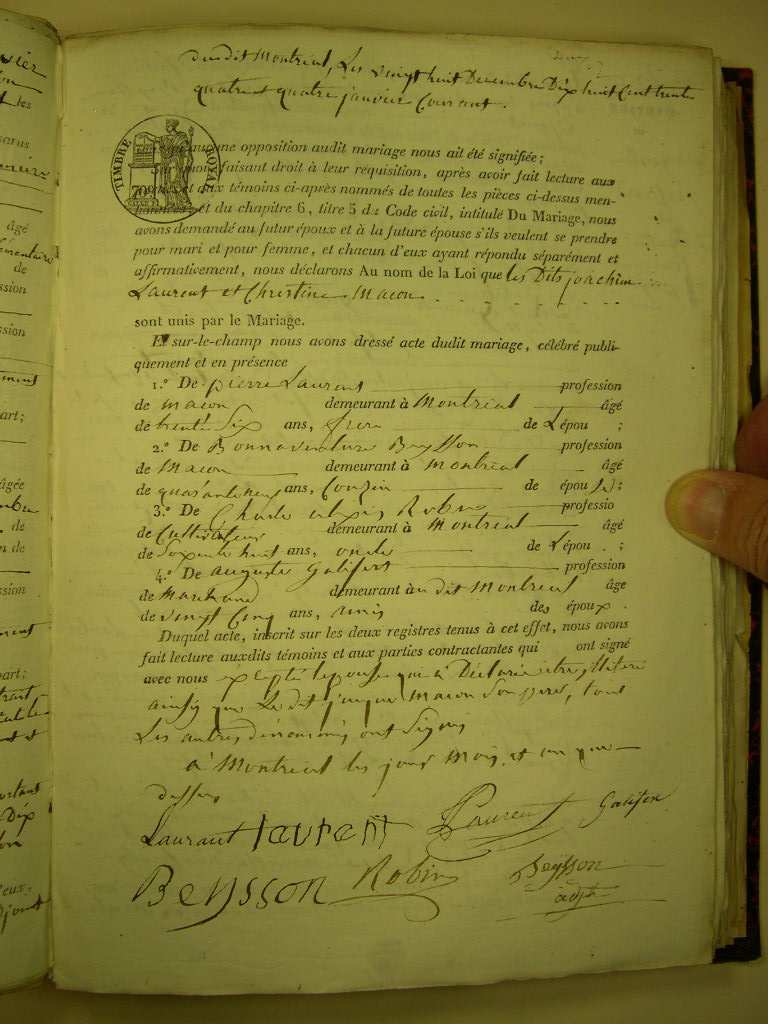 dudit Montréal, Les vingt huit Decembre Dix huit Cent trente
quatre et quatre janvier Courant.
TIMBRE ROYAL
aucune opposition audit mariage nous ait été signifiée;
faisant droit à leur requisition, après avoir fait lecture aux
et aux témoins ci-après nommés de toutes les pièces ci-dessus men-
et du chapitre 6, titre 5 du Code civil, intitulé Du Mariage, nous
avons demandé au futur époux et à la future épouse s'ils veulent se prendre
pour mari et pour femme, et chacun d'eux ayant répondu séparément et
affirmativement, nous déclarons Au nom de la Loi que les Dits joachim
Laurent et Christine Macon
sont unis par le Mariage.
Et sur-le-champ nous avons dressé acte dudit mariage, célébré publi-
quement et en présence
1.º De pierre Laurent profession
de macon demeurant à Montréal âgé
de trente Six ans, frere de L'épou ;
2.º De Bonnaventure Beysson profession
de Macon demeurant à Montréal âgé
de quarante neuf ans, Couzin de épou ;
3.º De Charle alexis Robin professio
de Cultivateur demeurant à Montréal âgé
de Soixante huit ans, oncle de L'épou . ;
4.º De auguste Galifert profession
de Marchand demeurant à udit Montreal âge
de vingt Cinq ans, amis des époux .
Duquel acte, inscrit sur les deux registres tenus à cet effet, nous avons
fait lecture auxdits témoins et aux parties contractantes qui ont signé
avec nous Excepté lepouse qui à Déclarée etre
ainsy que Le dit jacque macon Son pere, tous
Les autres dénommés ont Signés
à Montréal les jour Mois, et an que
dessus
Laurant laurent Laurent Galifer
BEYSSON Robin Beysson
adjt